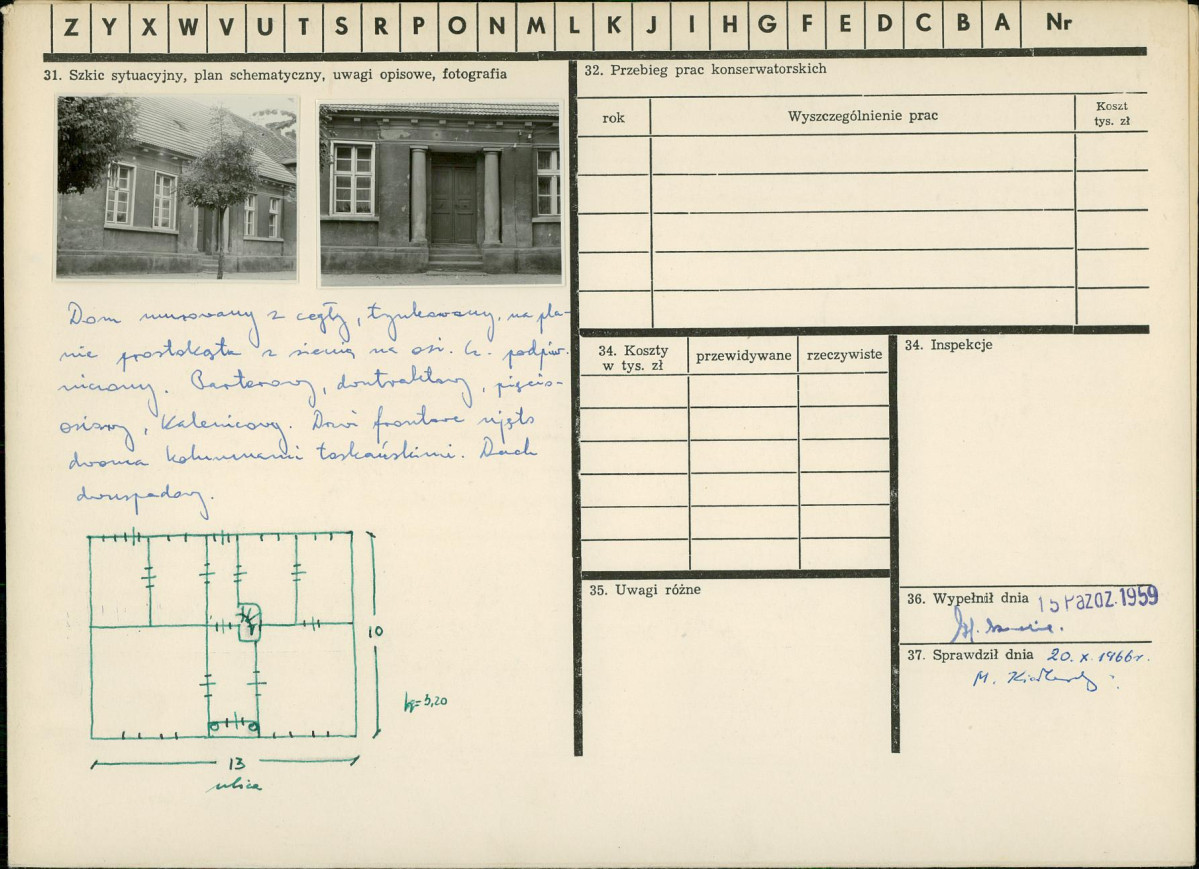 Z Y X W V U T S R P O N M L K J I H G F E D C B A Nr
31. Szkic sytuacyjny, plan schematyczny, uwagi opisowe, fotografia
Dom murowany z cegły, tynkowany, na pla-
nie prostokąta z sienią na osi. Cz. podpiw-
niczony. Parterowy, dwutraktowy, pięcio-
osiowy, kalenicowy. Drzwi frontowe ujęte
dwoma kolumnami toskańskimi. Dach
dwuspadowy.
10
h=3,20
13
ulica
32. Przebieg prac konserwatorskich
rok
Wyszczególnienie prac
Koszt
tys. zł
34. Koszty
w tys. zł
przewidywane
rzeczywiste
34. Inspekcje
35. Uwagi różne
36. Wypełnił dnia 15 PAZDZ. 1959
37. Sprawdził dnia 20. X. 1966 r.
M.